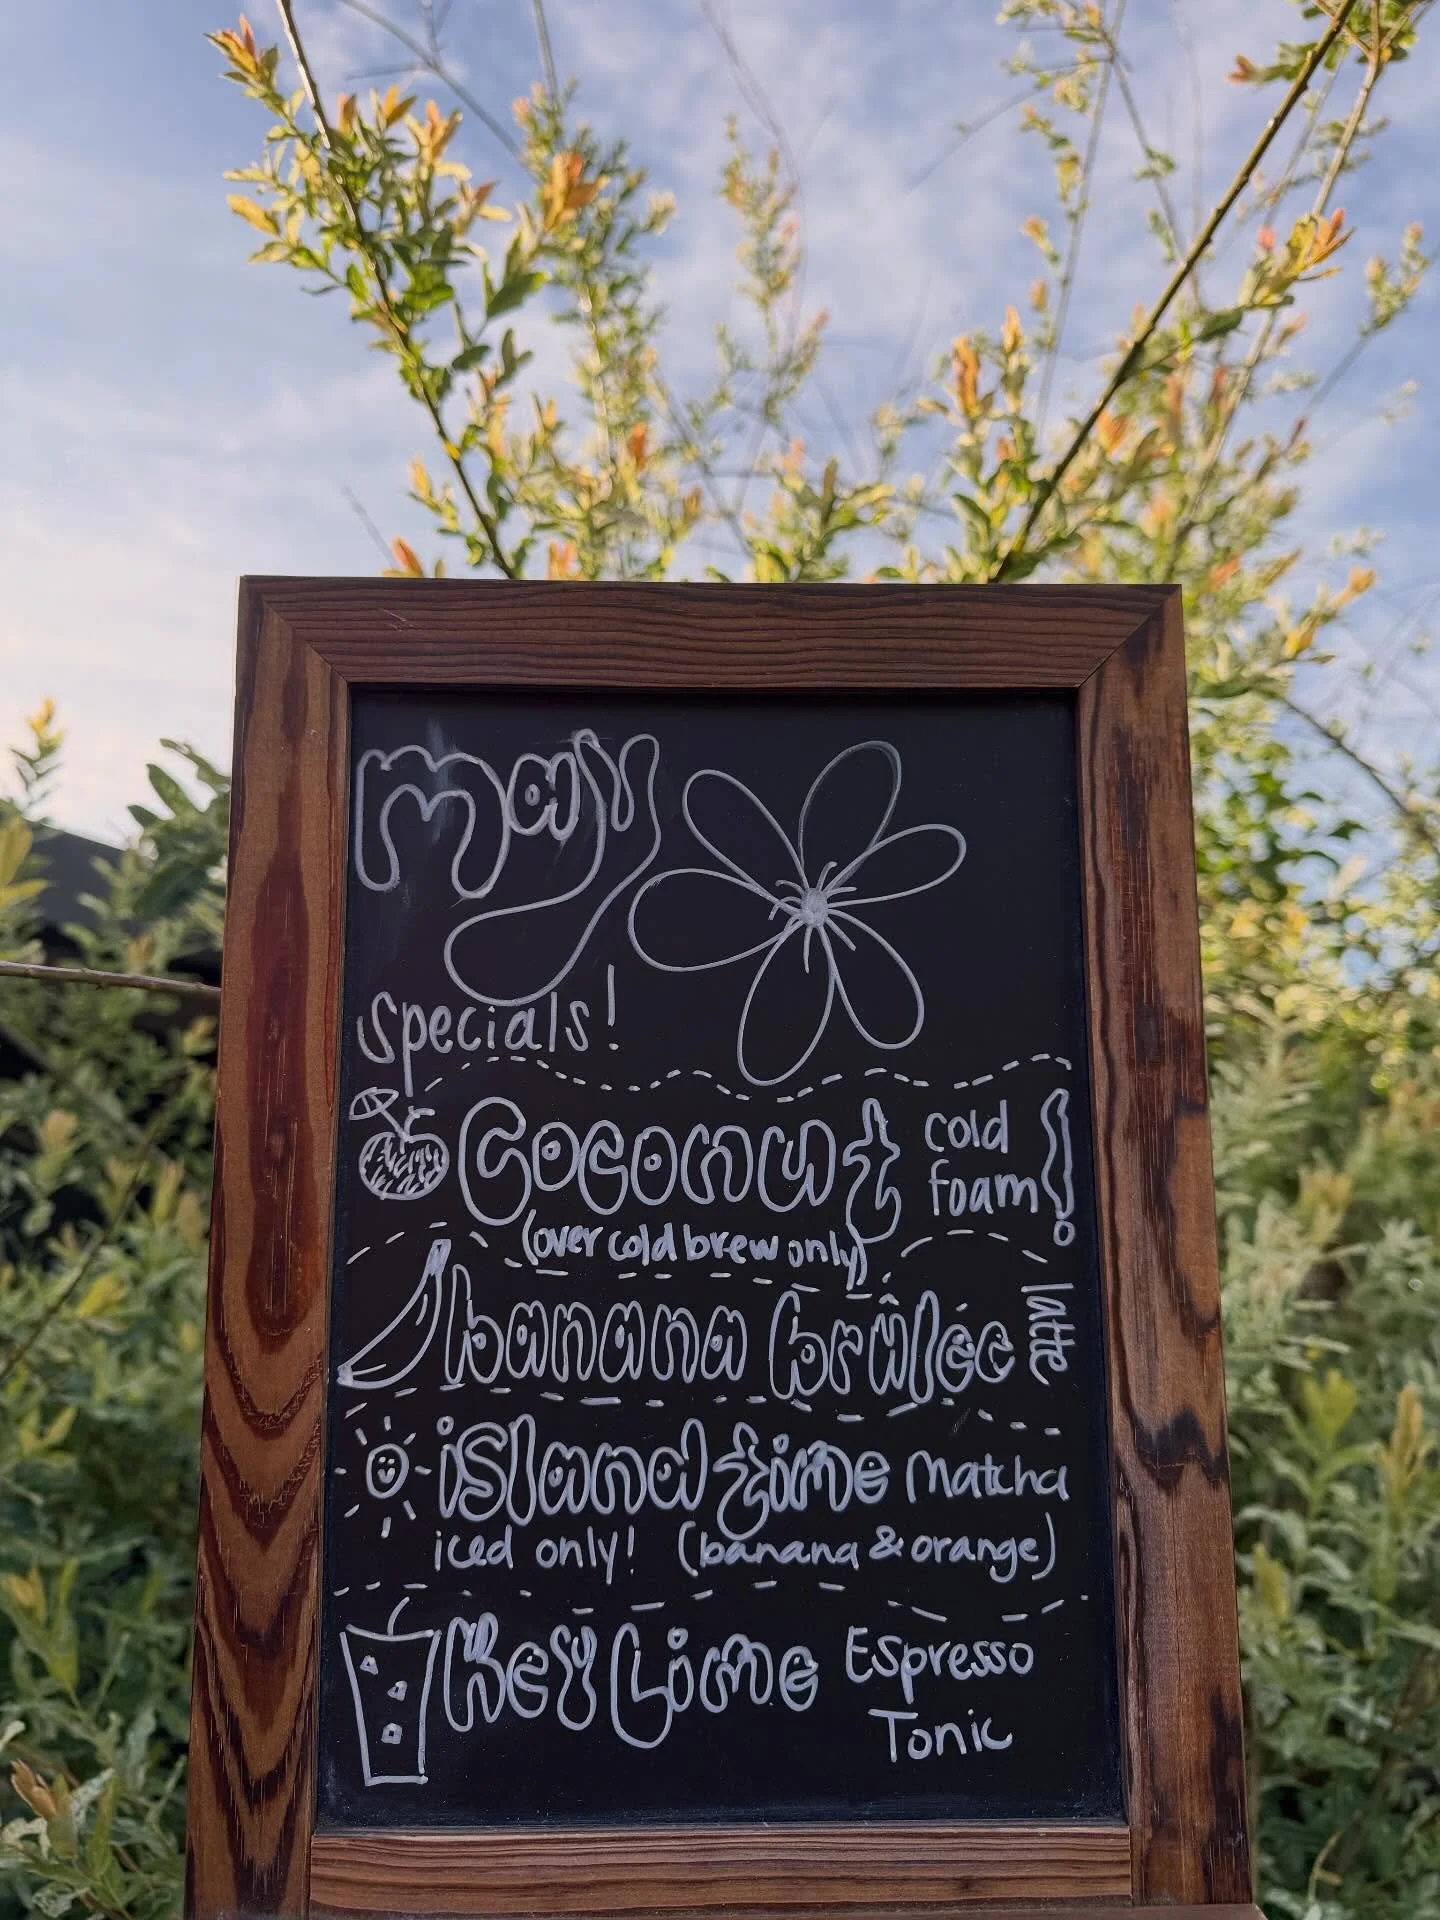 may
specials!
Coconut cold foam!
(over cold brew only)
banana brûlée latte
island time matcha
iced only! (banana & orange)
Key Lime Espresso Tonic